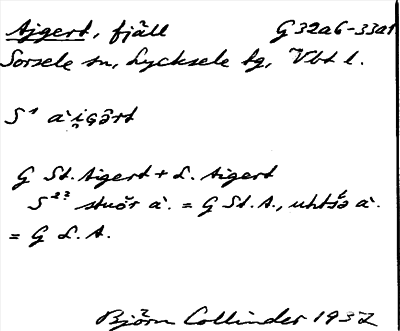 Ajgert, fjäll G 32a6-33a1
Sorsele sn, Lycksele lg, Vbt l.
S¹ a̒i̯gert
G St. Aigert + L. Aigert
S²² stuŏr a̒. = G St. A., uhtsə a̒.
= G L. A.
Björn Collinder 1937